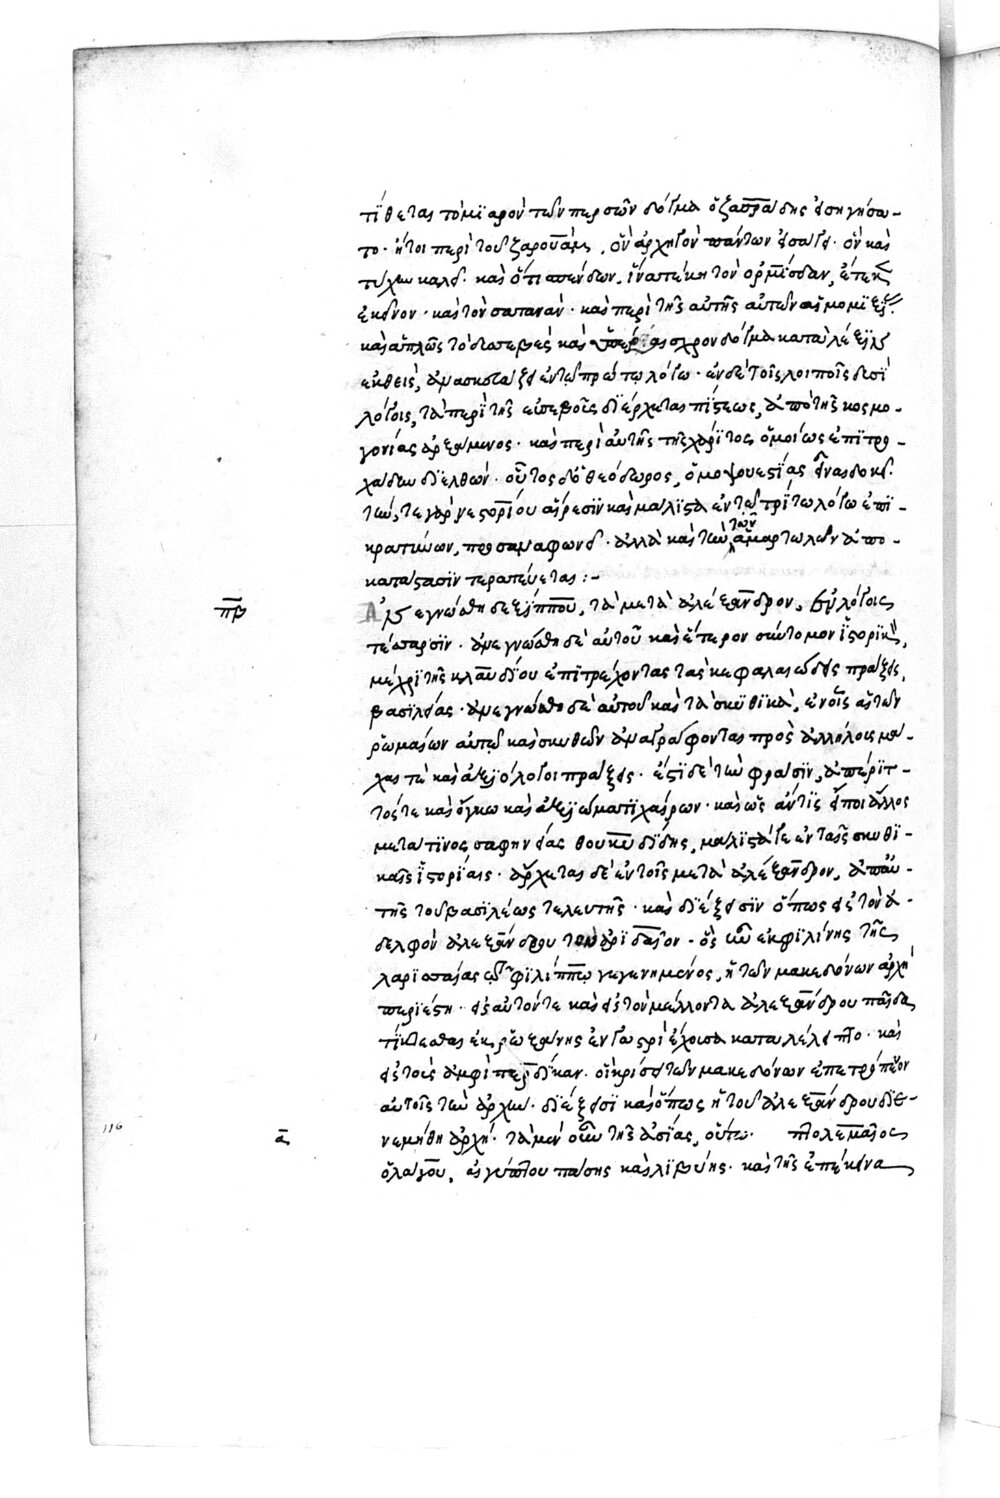 τίθεται τὸ μιαρὸν τῶν περσῶν δόγμα ὃ ζασράδης εἰσηγήσα-
το· ἤτοι περὶ τοῦ ζαρουὰμ, ὃν ἀρχηγὸν πάντων εἰσάγει· ὃν καὶ
τύχην καλεῖ· καὶ ὅτι σπένδων, ἵνα τέκῃ τὸν ὁρμίσδαν, ἔτεκεν
ἐκεῖνον· καὶ τὸν σατανᾶν· καὶ περὶ τῆς αὐτῶν αἱμομιξίας·
καὶ ἁπλῶς τὸ δυσσεβὲς καὶ ὑπέραισχρον δόγμα κατὰ λέξιν
ἐκθεὶς, ἀνασκευάζει ἐν τῷ πρώτῳ λόγῳ· ἐν δὲ τοῖς λοιποῖς δυσὶ
λόγοις, τὰ περὶ τῆς εὐσεβοῦς διέρχεται πίστεως, ἀπὸ τῆς κοσμο-
γονίας ἀρξάμενος· καὶ περὶ αὐτῆς τῆς χάριτος ὁμοίως ἐπιτρο-
χάδην διελθών· οὗτος ὁ θεόδωρος, ὁ μοψουεστίας εἶναι δοκεῖ·
τήν, τε γὰρ νεστορίου αἵρεσιν καὶ μάλιστα ἐν τῷ τρίτῳ λόγῳ ἐπι-
κρατύνων, προσαναφωνεῖ· ἀλλὰ καὶ τὴν τῶν ἁμαρτωλῶν ἀπο-
κατάστασιν τερατεύεται:-
πβ
Ἀνεγνώσθη δεξίππου, τὰ μετὰ ἀλέξανδρον, ἐν λόγοις
τέσσαρσιν· ἀνεγνώσθη δὲ αὐτοῦ καὶ ἕτερον σύντομον ἱστορικὸν,
μέχρι τῆς κλαυδίου ἐπιτρέχον τὰς κεφαλαιώδεις πράξεις,
βασιλείας· ἀνεγνώσθη δὲ αὐτοῦ καὶ τὰ σκυθικὰ, ἐν οἷς αἱ τῶν
ῥωμαίων αὐτῷ καὶ σκυθῶν ἀναγράφονται πρὸς ἀλλήλους μά-
χαι τὲ καὶ ἀξιόλογοι πράξεις· ἔστι δὲ τὴν φράσιν, ἀπέριτ-
τός τε καὶ ὄγκῳ καὶ ἀξιώματι χαίρων· καὶ ὡς ἄν τις εἴποι ἄλλος
μετά τινος σαφηνείας θουκυδίδης, μάλιστά γε ἐν ταῖς σκυθι-
καῖς ἱστορίαις· ἄρχεται δὲ ἐν τοῖς μετὰ ἀλέξανδρον, ἀπ' αὐ-
τῆς τοῦ βασιλέως τελευτῆς· καὶ διέξεισιν ὅπως εἰς τὸν ἀ-
δελφὸν ἀλεξάνδρου τὸν ἀριδαῖον· ὃς ἦν ἐκ φιλίνης τῆς
λαρισσαίας τῷ φιλίππῳ γεγενημένος, ἡ τῶν μακεδόνων ἀρχὴ
περιέστη· εἰς αὐτόν τε καὶ εἰς τὸν μέλλοντα ἀλεξάνδρου παῖδα
τίκτεσθαι ἐκ ῥωξάνης ἐν γαστρὶ ἔχουσα καταλέλειπτο· καὶ
εἰς τοὺς ἀμφὶ περδίκαν· οἳ κρίσει τῶν μακεδόνων ἐπετρόπευον
αὐτοῖς τὴν ἀρχήν· διέξεισι καὶ ὅπως ἡ τοῦ ἀλεξάνδρου διε-
116
α
νεμήθη ἀρχή· τὰ μὲν οὖν τῆς ἀσίας, οὕτω· πτολεμαῖος
ὁ λάγου, αἰγύπτου πάσης καὶ λιβύης· καὶ τῆς ἐπέκεινα